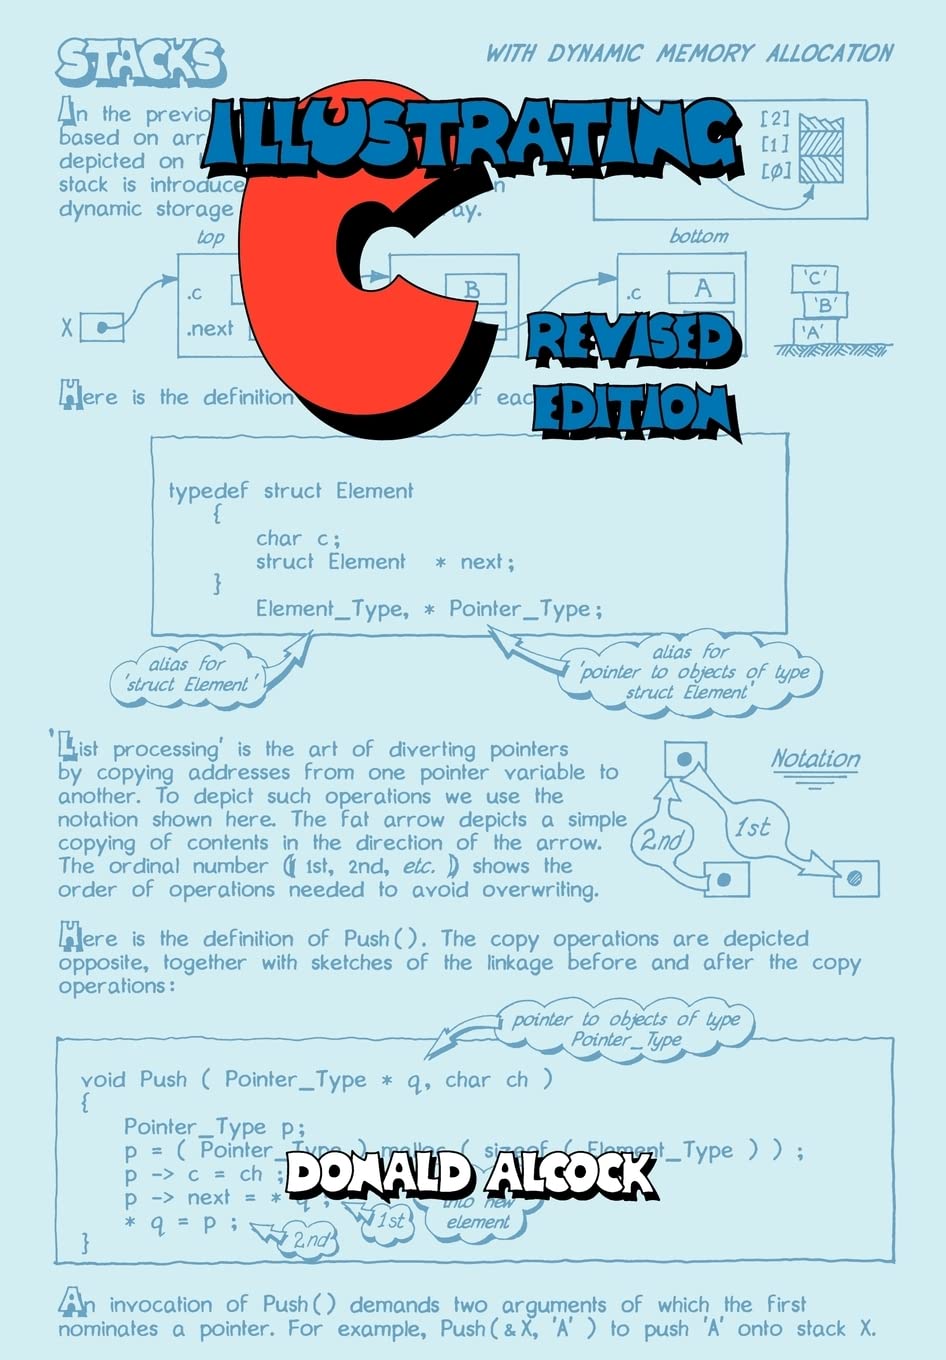 STACKS
WITH DYNAMIC MEMORY ALLOCATION
ILLUSTRATING
C
REVISED
EDITION
In the previo
based on arr
depicted on
stack is introduce
dynamic storage ay.
[2]
[1]
[0]
top
bottom
.c
B
.c A
'C'
'B'
'A'
X
.next
Here is the definition of eac
typedef struct Element
{
char c;
struct Element * next;
}
Element_Type, * Pointer_Type;
alias for
'struct Element'
alias for
'pointer to objects of type
struct Element'
'List processing' is the art of diverting pointers
by copying addresses from one pointer variable to
another. To depict such operations we use the
notation shown here. The fat arrow depicts a simple
copying of contents in the direction of the arrow.
The ordinal number (1st, 2nd, etc.) shows the
order of operations needed to avoid overwriting.
Notation
2nd
1st
Here is the definition of Push(). The copy operations are depicted
opposite, together with sketches of the linkage before and after the copy
operations:
pointer to objects of type
Pointer_Type
void Push ( Pointer_Type * q, char ch )
{
Pointer_Type p;
p = ( Pointer_Type ) malloc ( sizeof ( Element_Type ) ) ;
p -> c = ch ;
p -> next = * q ;
* q = p ;
}
2nd
1st
into new
element
DONALD ALCOCK
An invocation of Push() demands two arguments of which the first
nominates a pointer. For example, Push(&X, 'A' ) to push 'A' onto stack X.